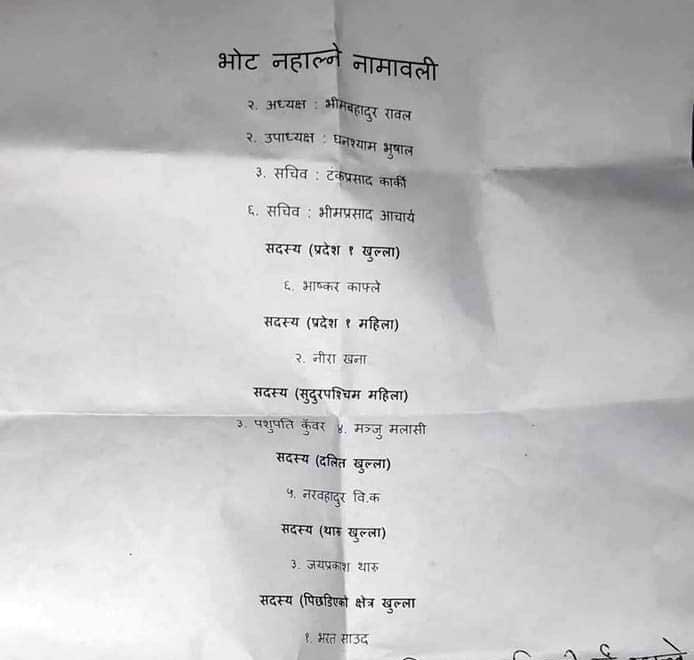 भोट नहाल्ने नामावली
२. अध्यक्ष : भीमबहादुर रावल
२. उपाध्यक्ष : घनश्याम भुषाल
३. सचिव : टंकप्रसाद कार्की
६. सचिव : भीमप्रसाद आचार्य
सदस्य (प्रदेश १ खुल्ला)
६. भाष्कर काफ्ले
सदस्य (प्रदेश १ महिला)
२. नीरा खना
सदस्य (सुदुरपश्चिम महिला)
३. पशुपति कुँवर ४. मञ्जु मलासी
सदस्य (दलित खुल्ला)
५. नरवहादुर वि.क
सदस्य (थारु खुल्ला)
३. जयप्रकाश थारु
सदस्य (पिछडिएको क्षेत्र खुल्ला
१. भरत साउद